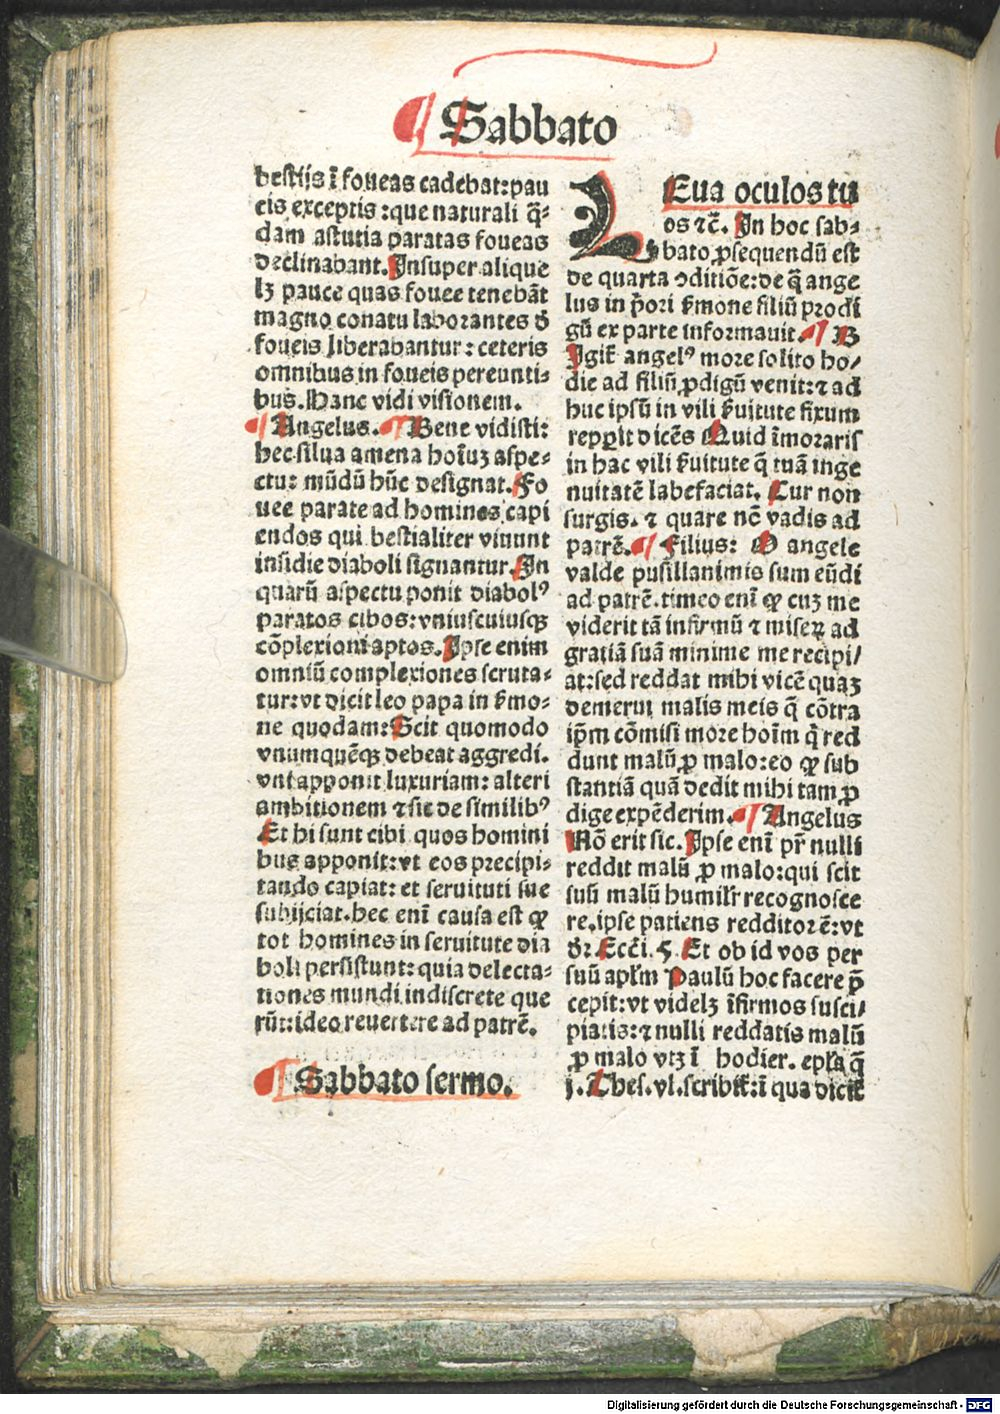 Sabbato
bestijs ĩ foueas cadebat: pau
cis exceptis: que naturali q̃-
dam astutia paratas foueas
declinabant. Insuper alique
lꝫ pauce quas fouee tenebãt
magno conatu laborantes ð
foueis liberabantur: ceteris
omnibus in foueis pereunti-
bus. Hanc vidi visionem.
¶ Angelus. ¶ Bene vidisti:
hec silua amena hoĩuꝫ aspe-
ctu: mũdũ hũc designat. Fo
uee parate ad homines capi
endos qui bestialiter viuunt
insidie diaboli signantur. In
quarũ aspectu ponit diabolꝰ
paratos cibos: vniuscuiusqꝫ
cõplexioni aptos. Ipse enim
omniũ complexiones scruta-
tur: vt dicit leo papa in ẜmo-
ne quodam: Scit quomodo
vnumquẽqꝫ debeat aggredi.
vni apponit luxuriam: alteri
ambitionem ⁊ sic de similibꝰ
Et hi sunt cibi quos homini
bus apponit: vt eos precipi-
tando capiat: et seruituti sue
subijciat. hec enĩ causa est ꝙ
tot homines in seruitute dia
boli persistunt: quia delecta-
tiones mundi indiscrete que
rũt: ideo reuertere ad patrẽ.
¶ Sabbato sermo.
LEua oculos tu
os ⁊c̃. In hoc sab-
bato ꝓsequendũ est
de quarta ↄditiõe: de q̃ ange
lus in p̃ori ẜmone filiũ prodi
gũ ex parte informauit. ¶ B
Igit̃ angelꝰ more solito ho/
die ad filiũ ꝓdigũ venit: ⁊ ad
huc ipsũ in vili ẜuitute fixum
repperit dicẽs Quid ĩmoraris
in hac vili ẜuitute q̃ tuã inge
nuitatẽ labefaciat. Cur non
surgis. ⁊ quare nõ vadis ad
patrẽ. ¶ Filius: O angele
valde pusillanimis sum eũdi
ad patrẽ. timeo enĩ ꝙ cuꝫ me
viderit tã infirmũ ⁊ miseꝝ ad
gratiã suã minime me recipi/
at: sed reddat mihi vicẽ quaꝫ
demerui malis meis q̃ cõtra
ip̃m cõmisi more hoĩm q̇ red
dunt malũ ꝓ malo: eo ꝙ sub
stantiã quã dedit mihi tam ꝓ
dige expẽderim. ¶ Angelus
Nõ erit sic. Ipse enĩ pr̃ nulli
reddit malũ ꝓ malo: qui scit
suũ malũ humilr̃ recognosce
re. ipse patiens redditor ẽ: vt
dr̃. Ecci. 5. Et ob id vos per
suũ apl̃m Paulũ hoc facere p̃
cepit: vt videlꝫ ĩfirmos susci/
piatis: ⁊ nulli reddatis malũ
ꝓ malo vtꝫ ĩ hodier. epl̃a q̃
j. Thes. vl. scribit̃: ĩ qua dicit̃
Digitalisierung gefördert durch die Deutsche Forschungsgemeinschaft - DFG